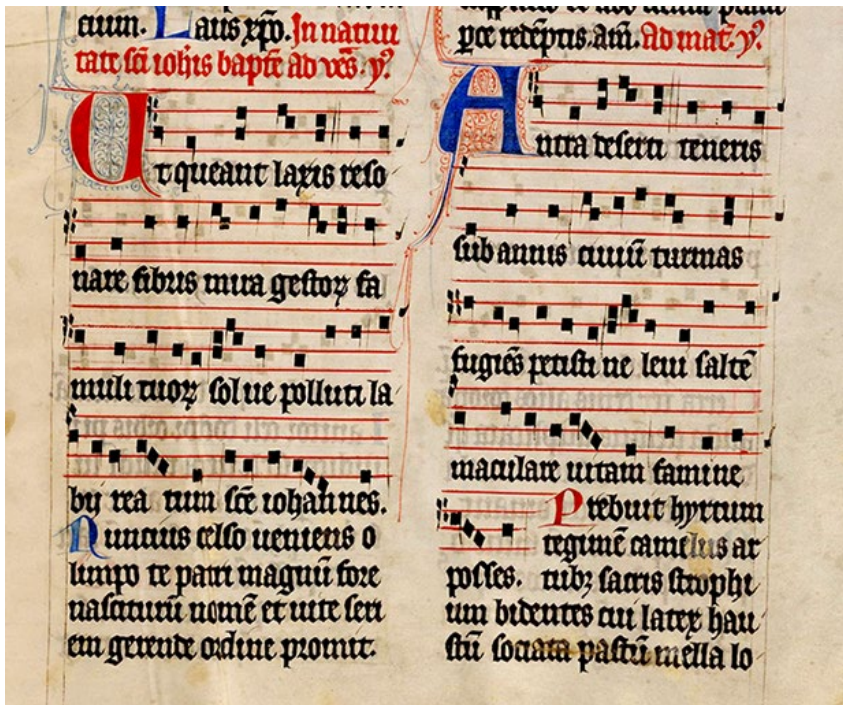 cium. Laus xp̄o. In natiui
tate sc̄i ioh̄is bapt̄e ad ves. y.
Ut queant laxis reso
nare fibris mira gestoꝝ fa
muli tuoꝝ solue polluti la
bij rea tum sc̄e iohannes.
Nuncius celso ueniens o
limpo te patri magnū fore
nasciturū nomē et uite seri
em gerende ordine promit.
redēptis. am̄. Ad mat̄. y.
Antra deserti teneris
sub annis ciuiū turmas
fugiēs petisti ne leui saltē
maculare uitam famine
posses. Prebuit hyrtum
tegumē camelus ar
tubꝫ sacris strophi
um bidentes cui latex hau
stū sociata pastū mella lo